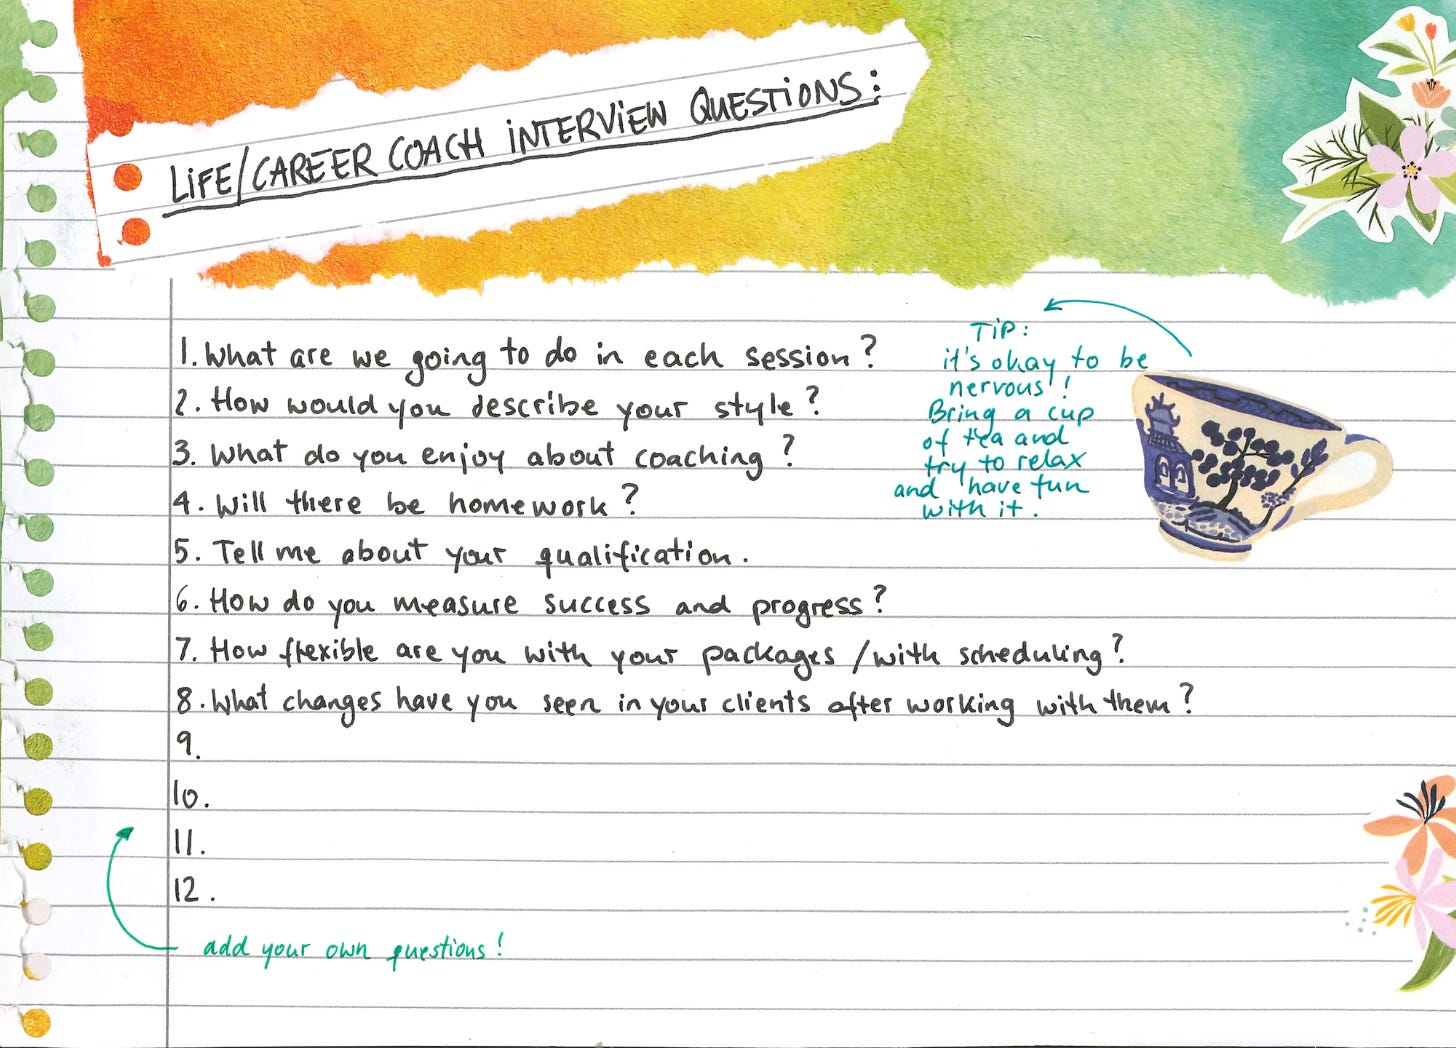 LiFE/CAREER COACH iNTERViEW QUESTiONS:
1. What are we going to do in each session?
2. How would you describe your style?
3. What do you enjoy about coaching?
4. Will there be homework?
5. Tell me about your qualification.
6. How do you measure success and progress?
7. How flexible are you with your packages /with scheduling?
8. What changes have you seen in your clients after working with them?
9.
10.
11.
12.
add your own questions!
TiP:
it's okay to be
nervous!
Bring a cup
of tea and
try to relax
and have fun
with it.